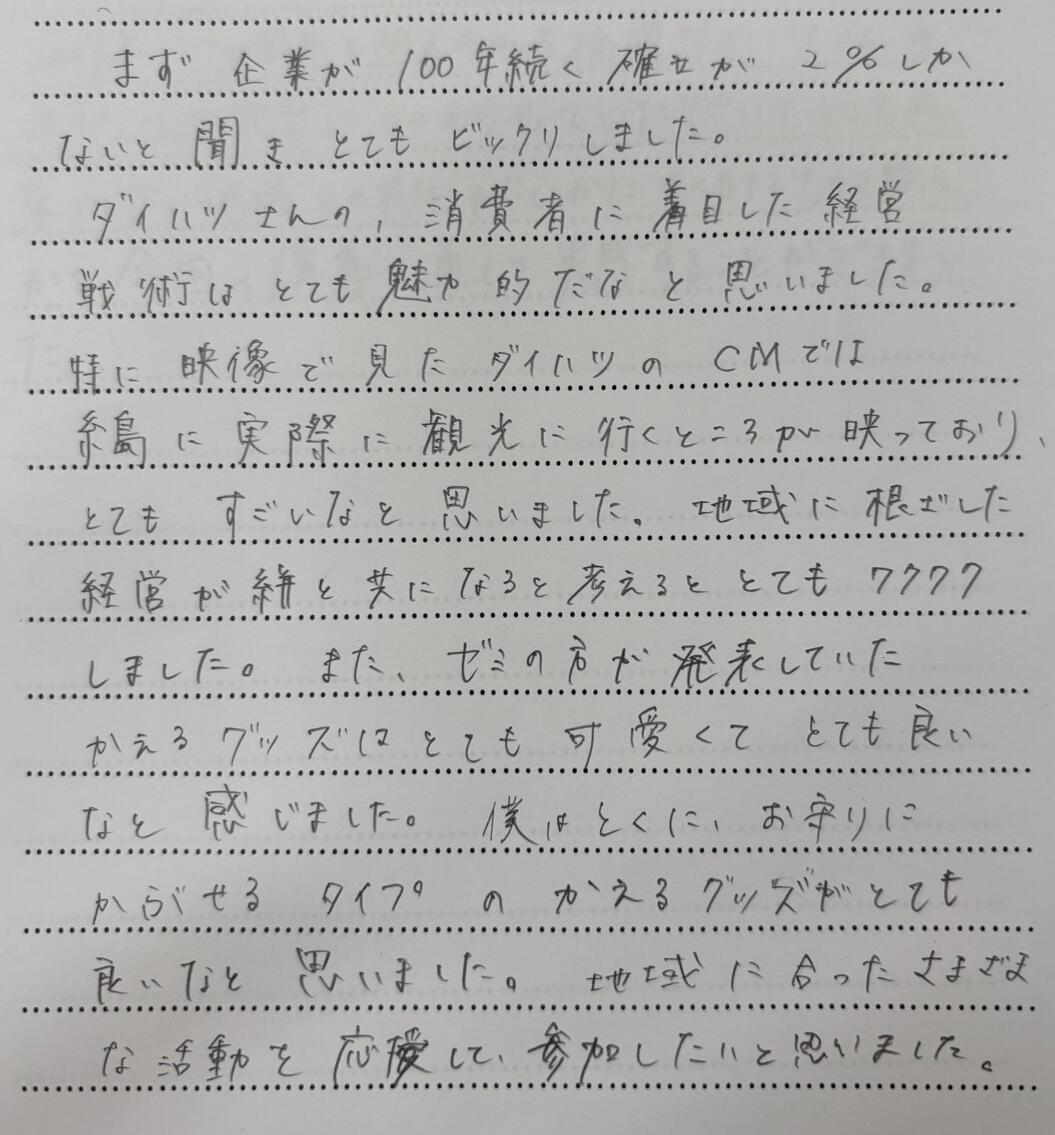 まず 企業が 100年続く 確立が 2%しか
ないと 聞き とても ビックリしました。
ダイハツさんの、消費者に着目した経営
戦術はとても魅力的だなと思いました。
特に映像で見たダイハツの CMでは
糸島に実際に観光に行くところが映っており、
とても すごいなと思いました。地域に根ざした
経営が絆と共になると考えるととてもワクワク
しました。また、ゼミの方が発表していた
かえるグッズはとても可愛くて とても良い
なと感じました。僕はとくに、お守りに
かぶせる タイプ の かえるグッズがとても
良いなと思いました。地域に合ったさまざま
な活動を応援して、参加したいと思いました。